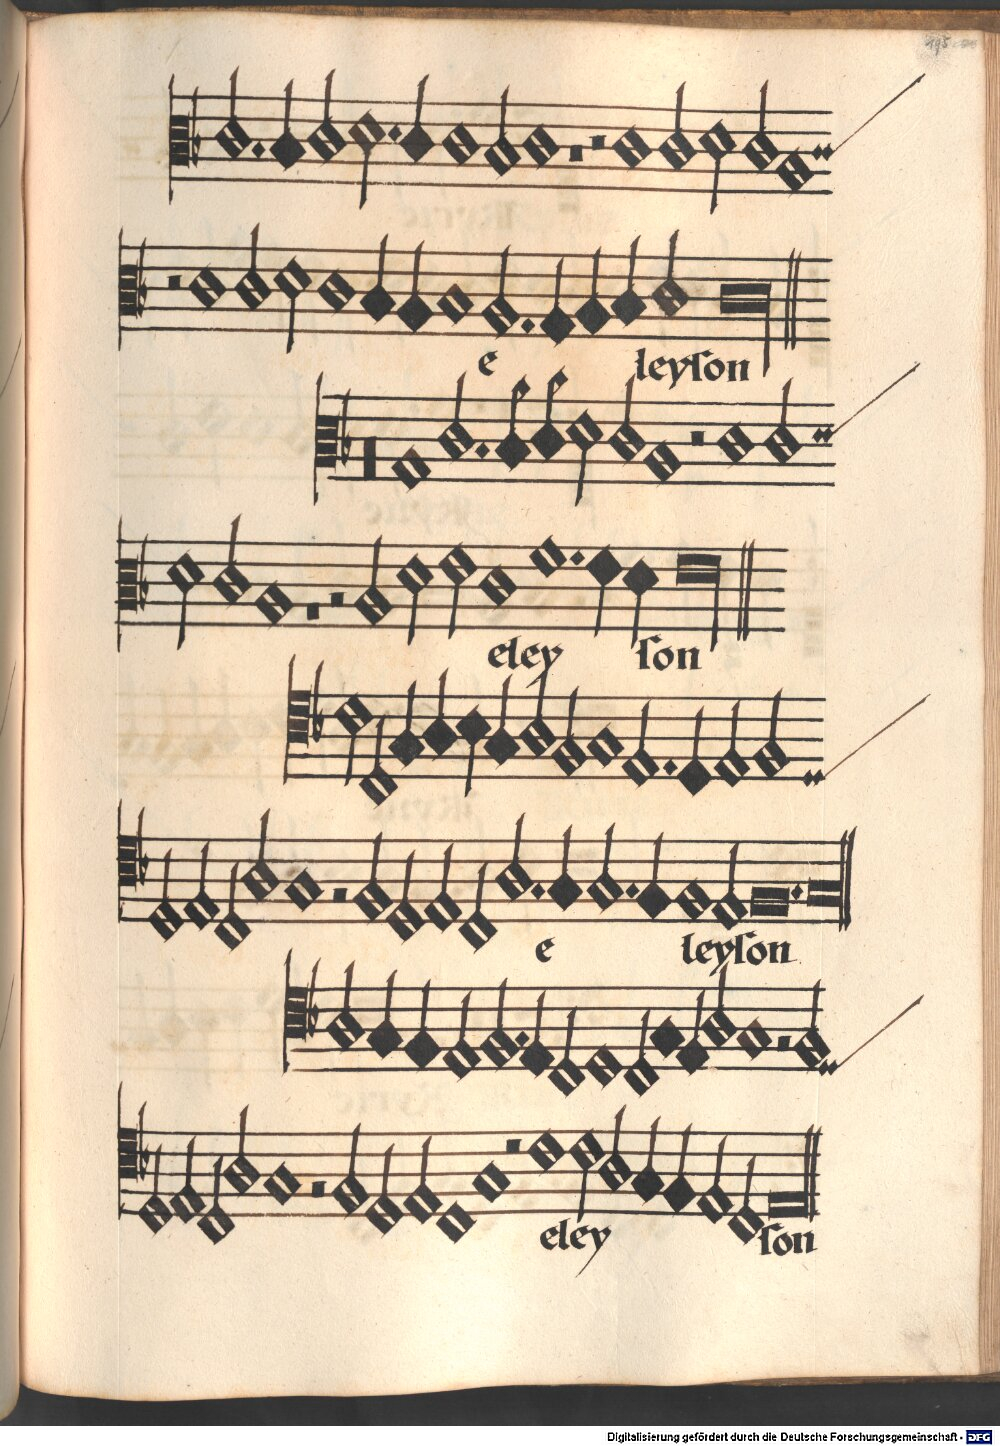 e leyson
eley son
e leyson
eley son
Digitalisierung gefördert durch die Deutsche Forschungsgemeinschaft - DFG